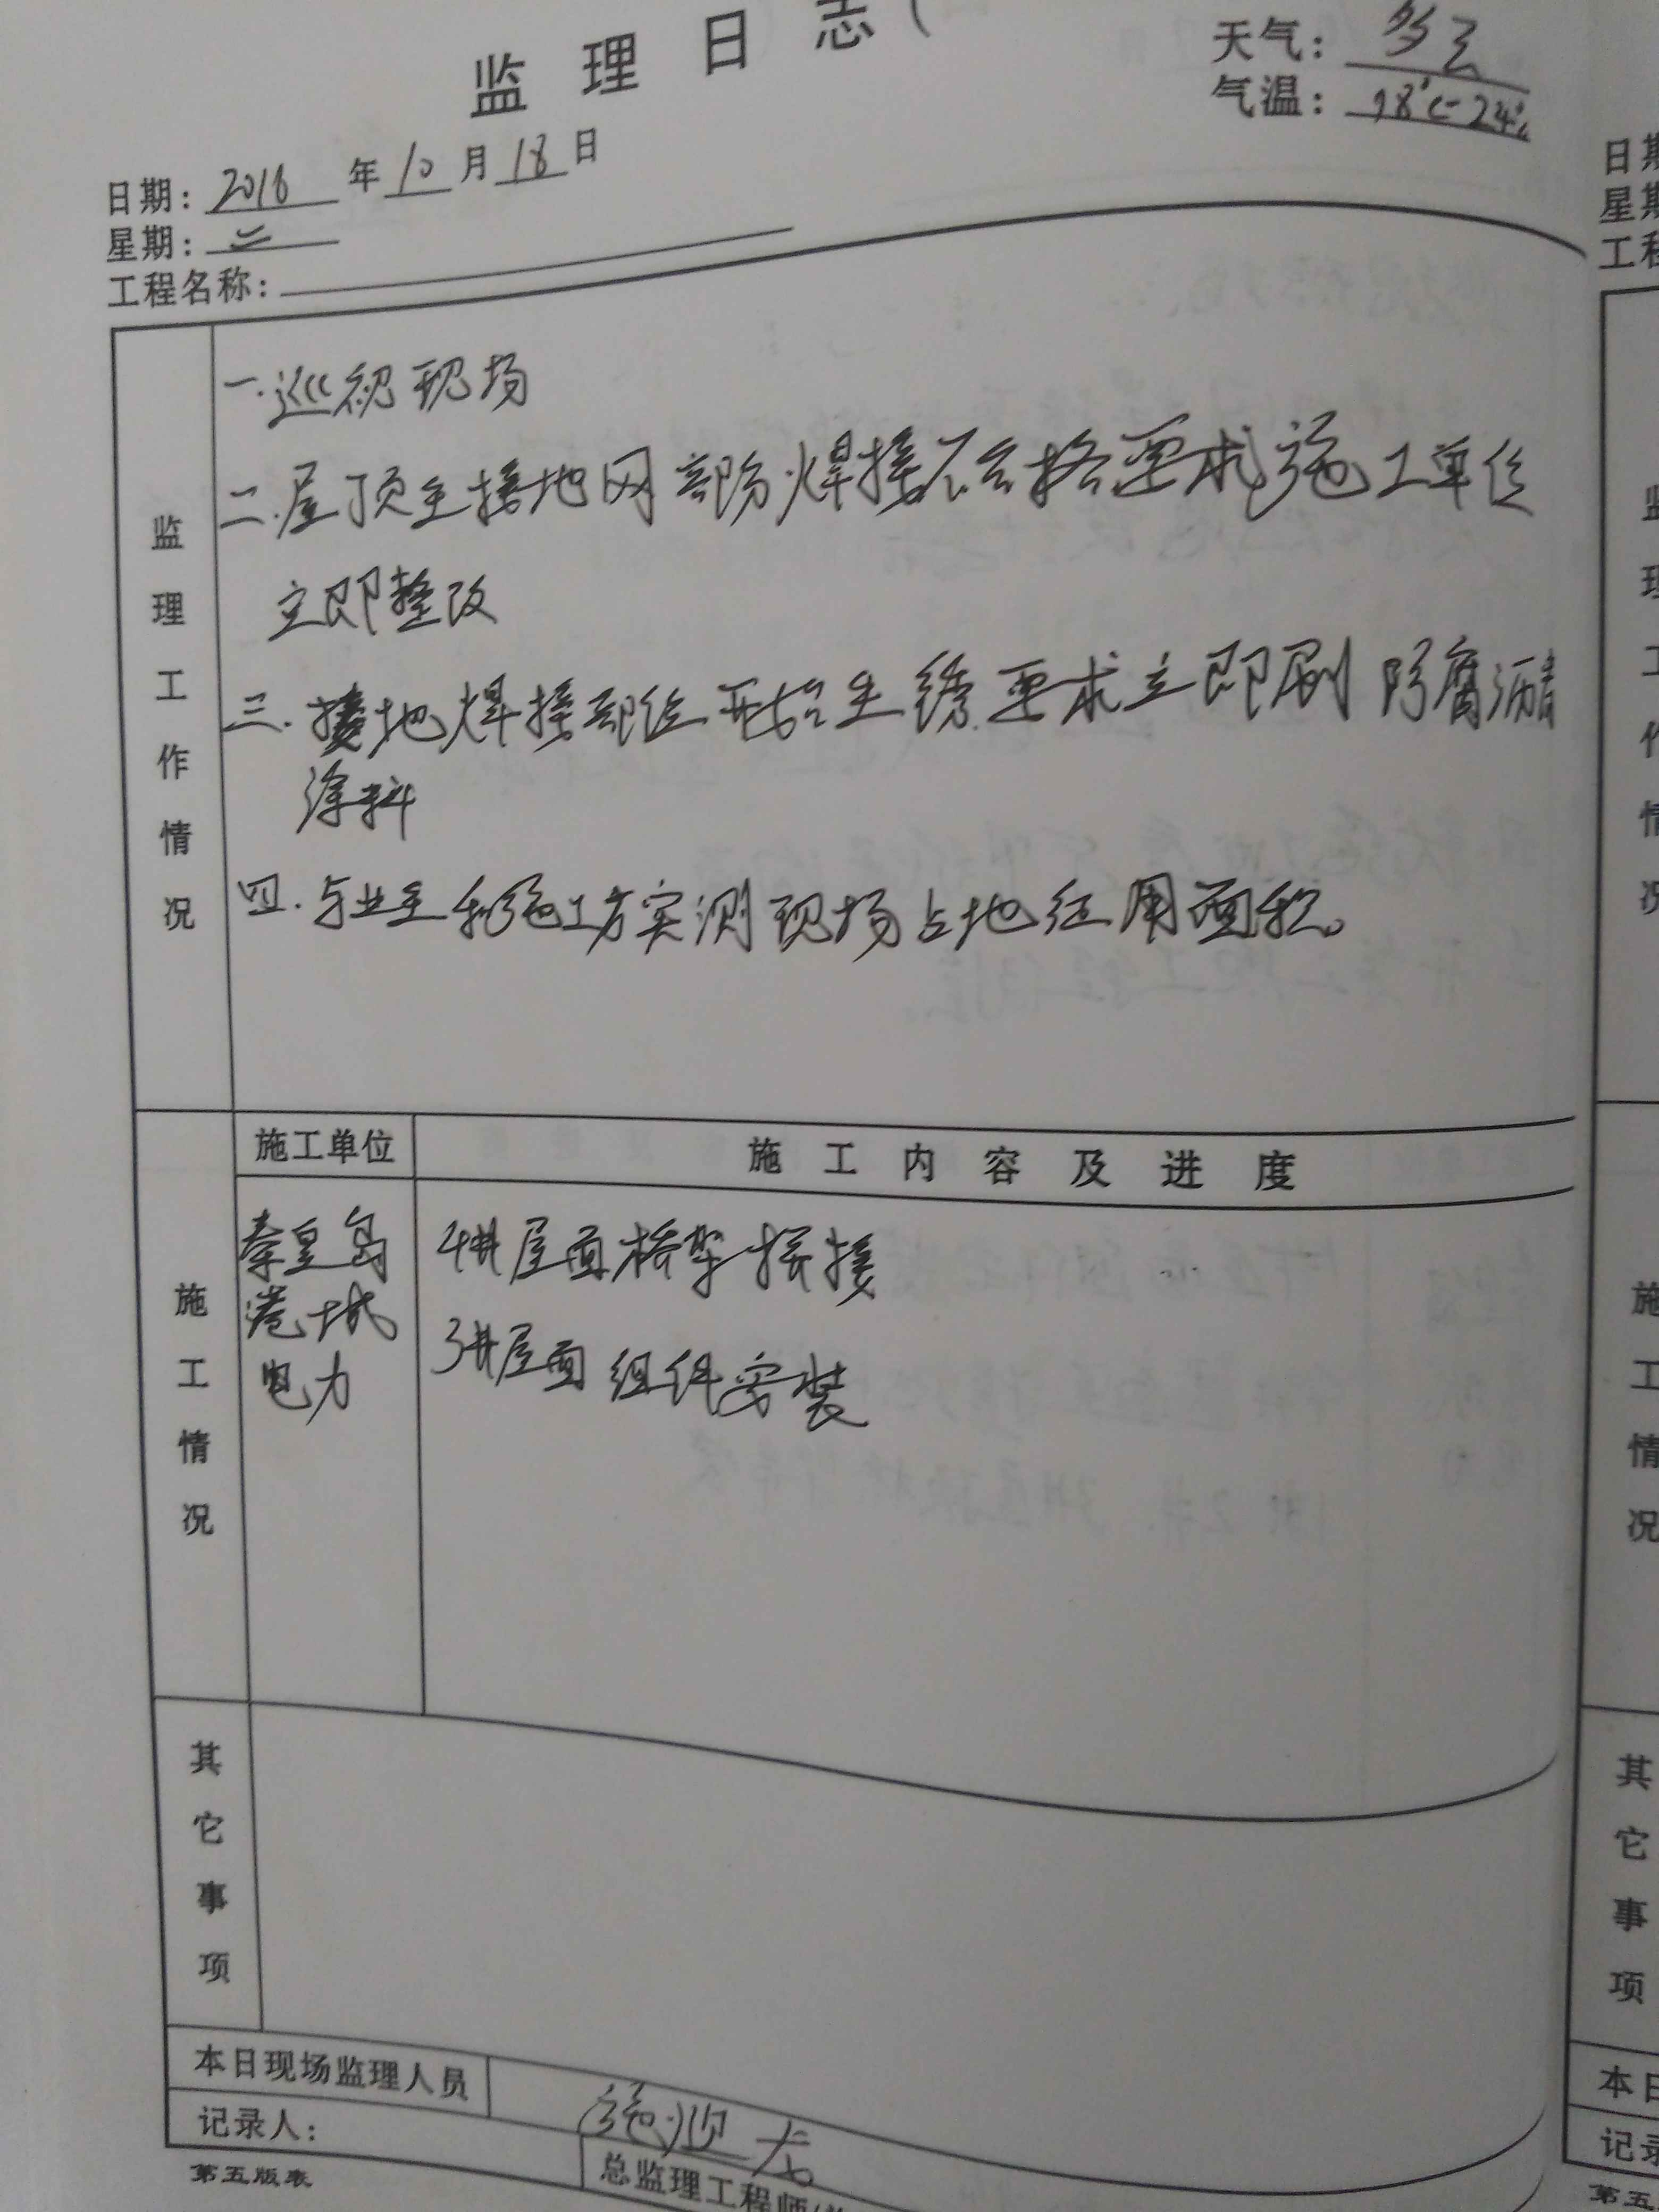 监理日志(
天气：多云
气温：18℃-24℃
日期：2016年10月18日
星期：二
工程名称：
监理工作情况
一.巡视现场
二.屋顶主接地网部防焊接不合格要求施工单位
立即整改
三.接地焊接部位开始生绣要求立即刷防腐沥青
涂料
四.与业主和施工方实测现场占地征用面积。
施工单位 施工内容及进度
施工情况
秦皇岛
港城
电力
4#屋面桥架焊接
3#屋面组件安装
其它事项
本日现场监理人员
记录人：
总监理工程师
第五版表
日期
星期
工程
监理工作情况
施工情况
其它事项
本日
记录
第五